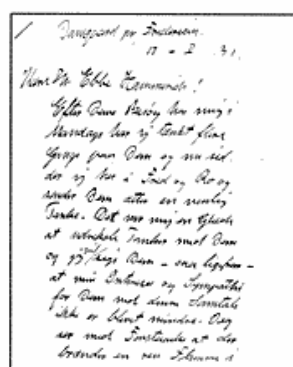 Damgaard pr. Fredericia.
17 - I 31.
Kære Hr. Ebbe Kornerup!
Efter Deres Besøg hos mig i
Mandags har jeg tænkt flere
Gange paa Dem og nu sid-
der jeg her i Fred og Ro og
sender Dem atter en venlig
Tanke. Det var mig en Glæde
at udveksle Tanker med Dem
og jeg Dem -
at min Interesse og Sympathi
for Dem med denne Samtale
ikke er blevet mindre. Jeg
ser med at der
brænder en ren Flamme i